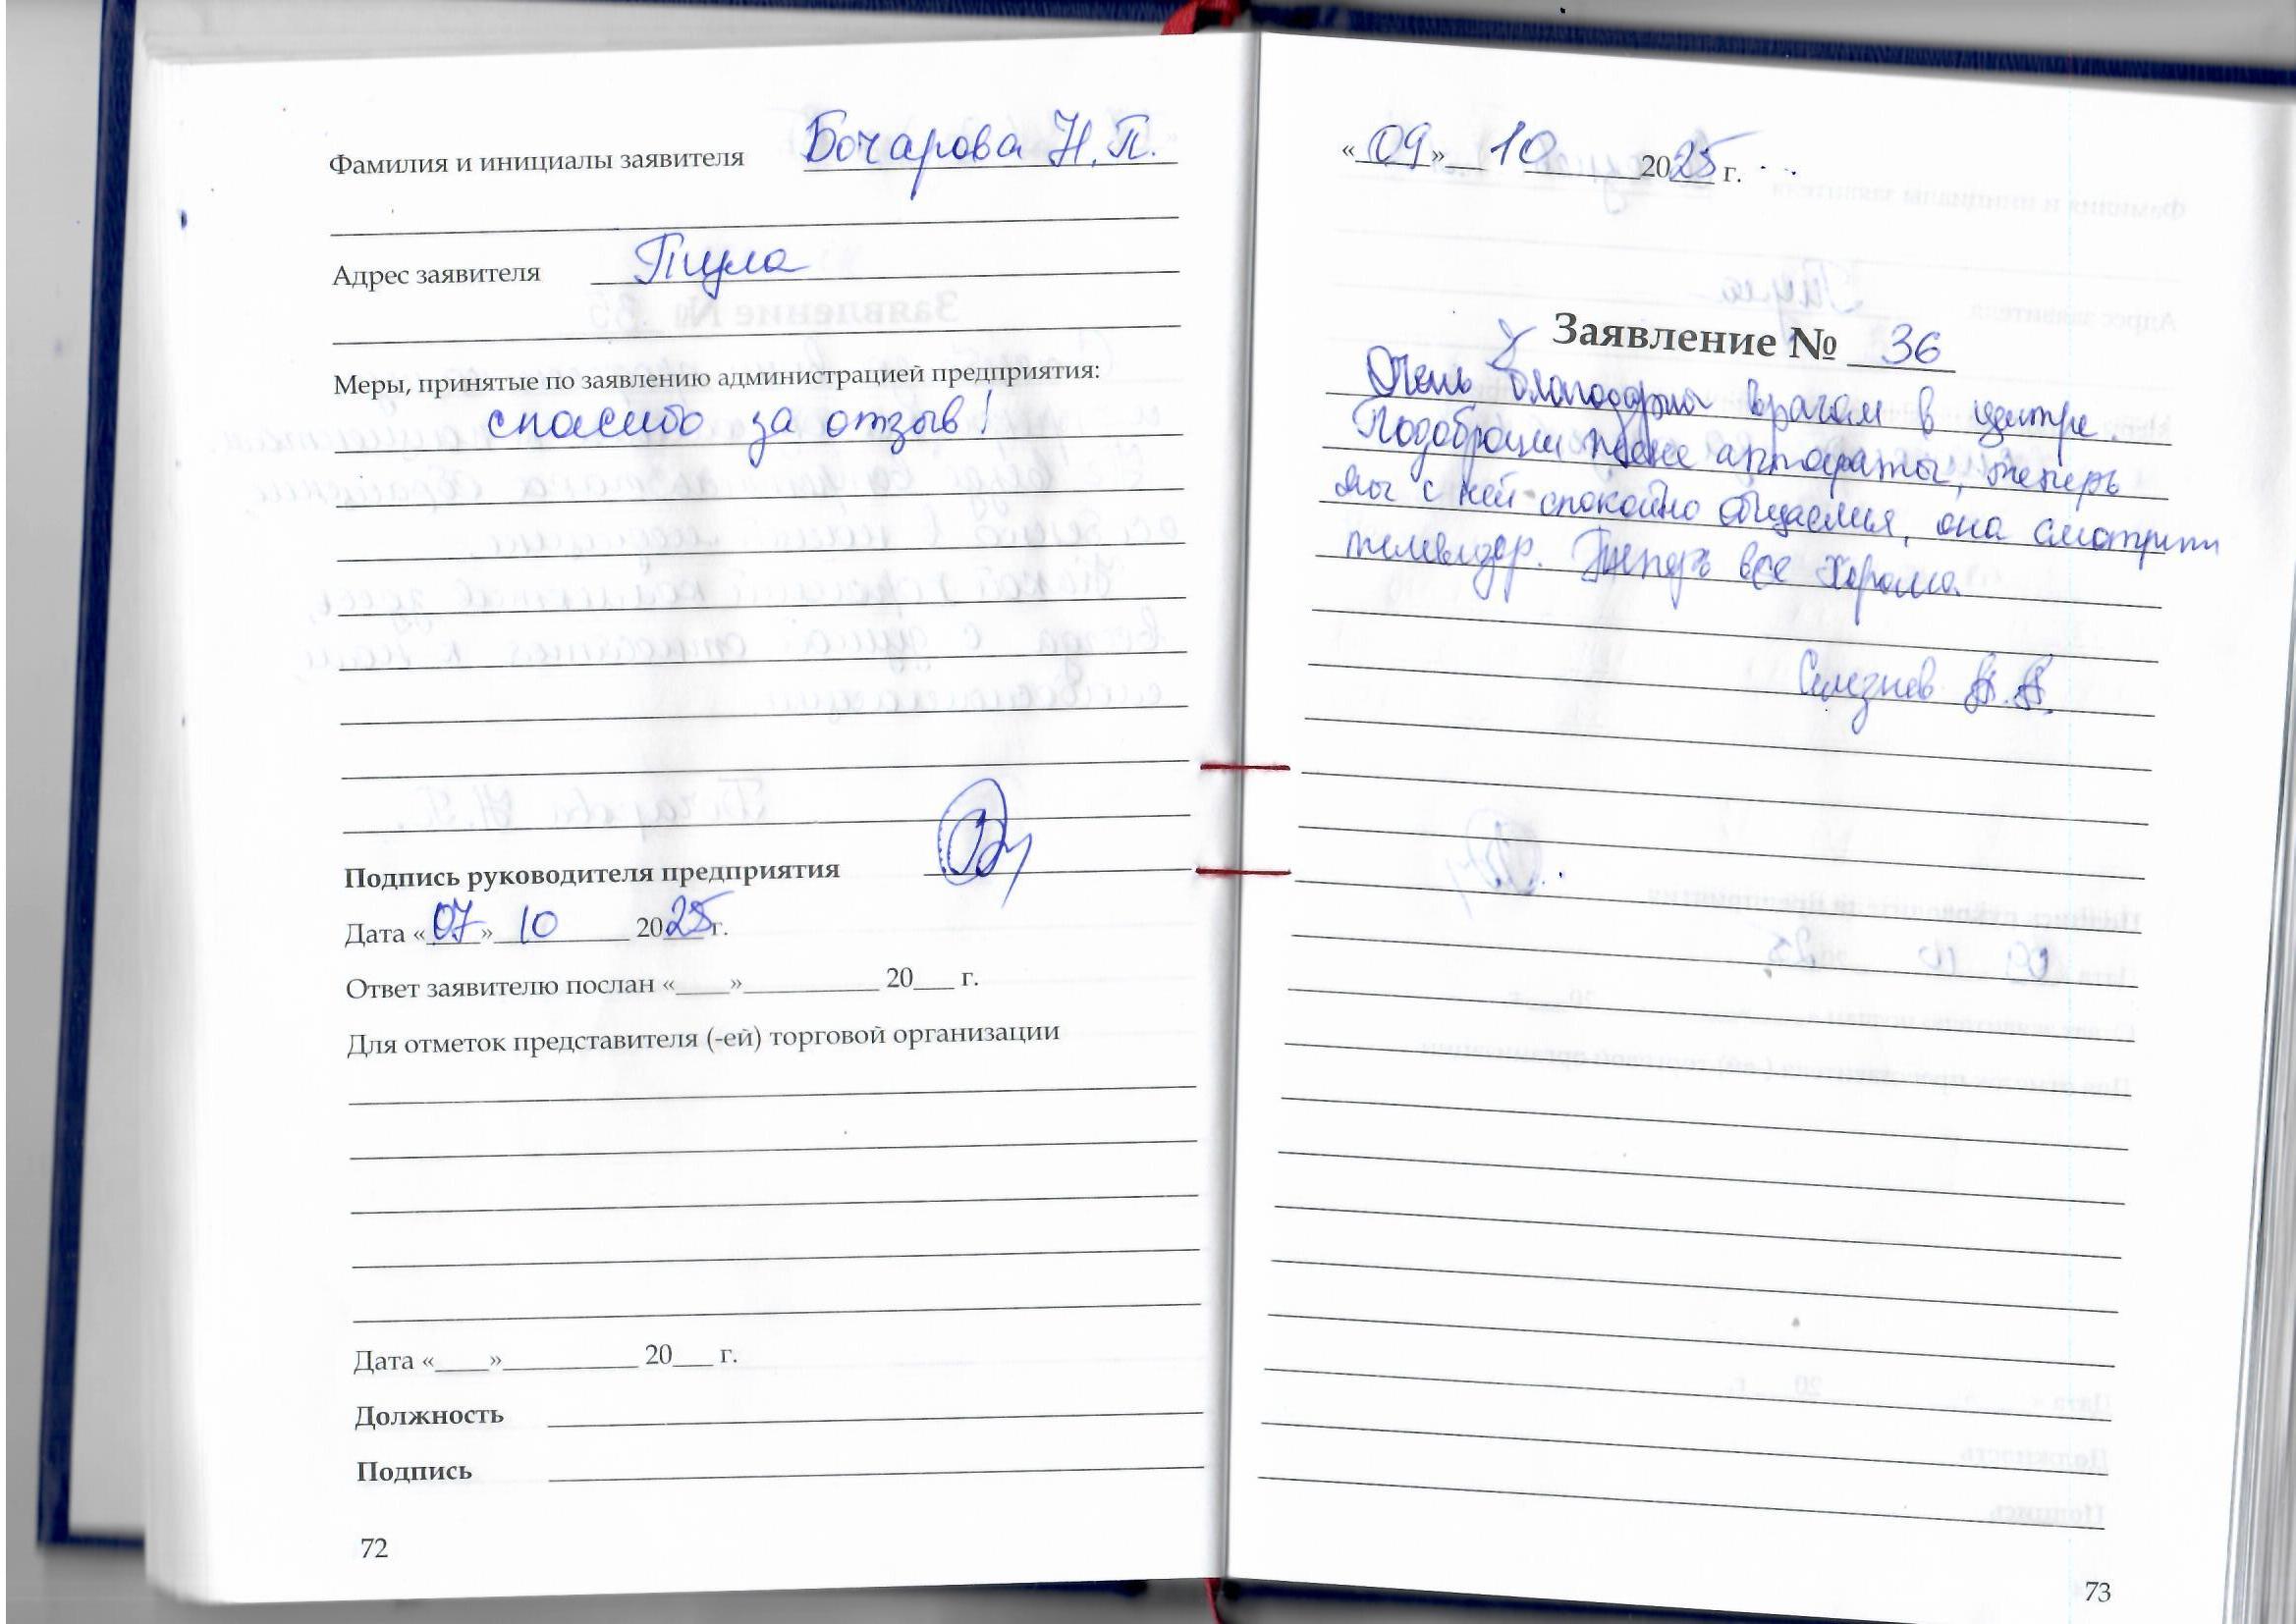 Фамилия и инициалы заявителя Бочарова Н.П.
Адрес заявителя Тула
Меры, принятые по заявлению администрацией предприятия:
спасибо за отзыв!
Подпись руководителя предприятия
Дата «07» 10 2025 г.
Ответ заявителю послан «____»__________ 20___ г.
Для отметок представителя (-ей) торговой организации
Дата «____»__________ 20___ г.
Должность
Подпись
72
«09» 10 2025 г.
Заявление № 36
Очень благодарны врачам в центре.
Подобрали жене аппараты, теперь
мы с ней спокойно общаемся, она смотрит
телевизор. Теперь все хорошо.
Селезнев
73